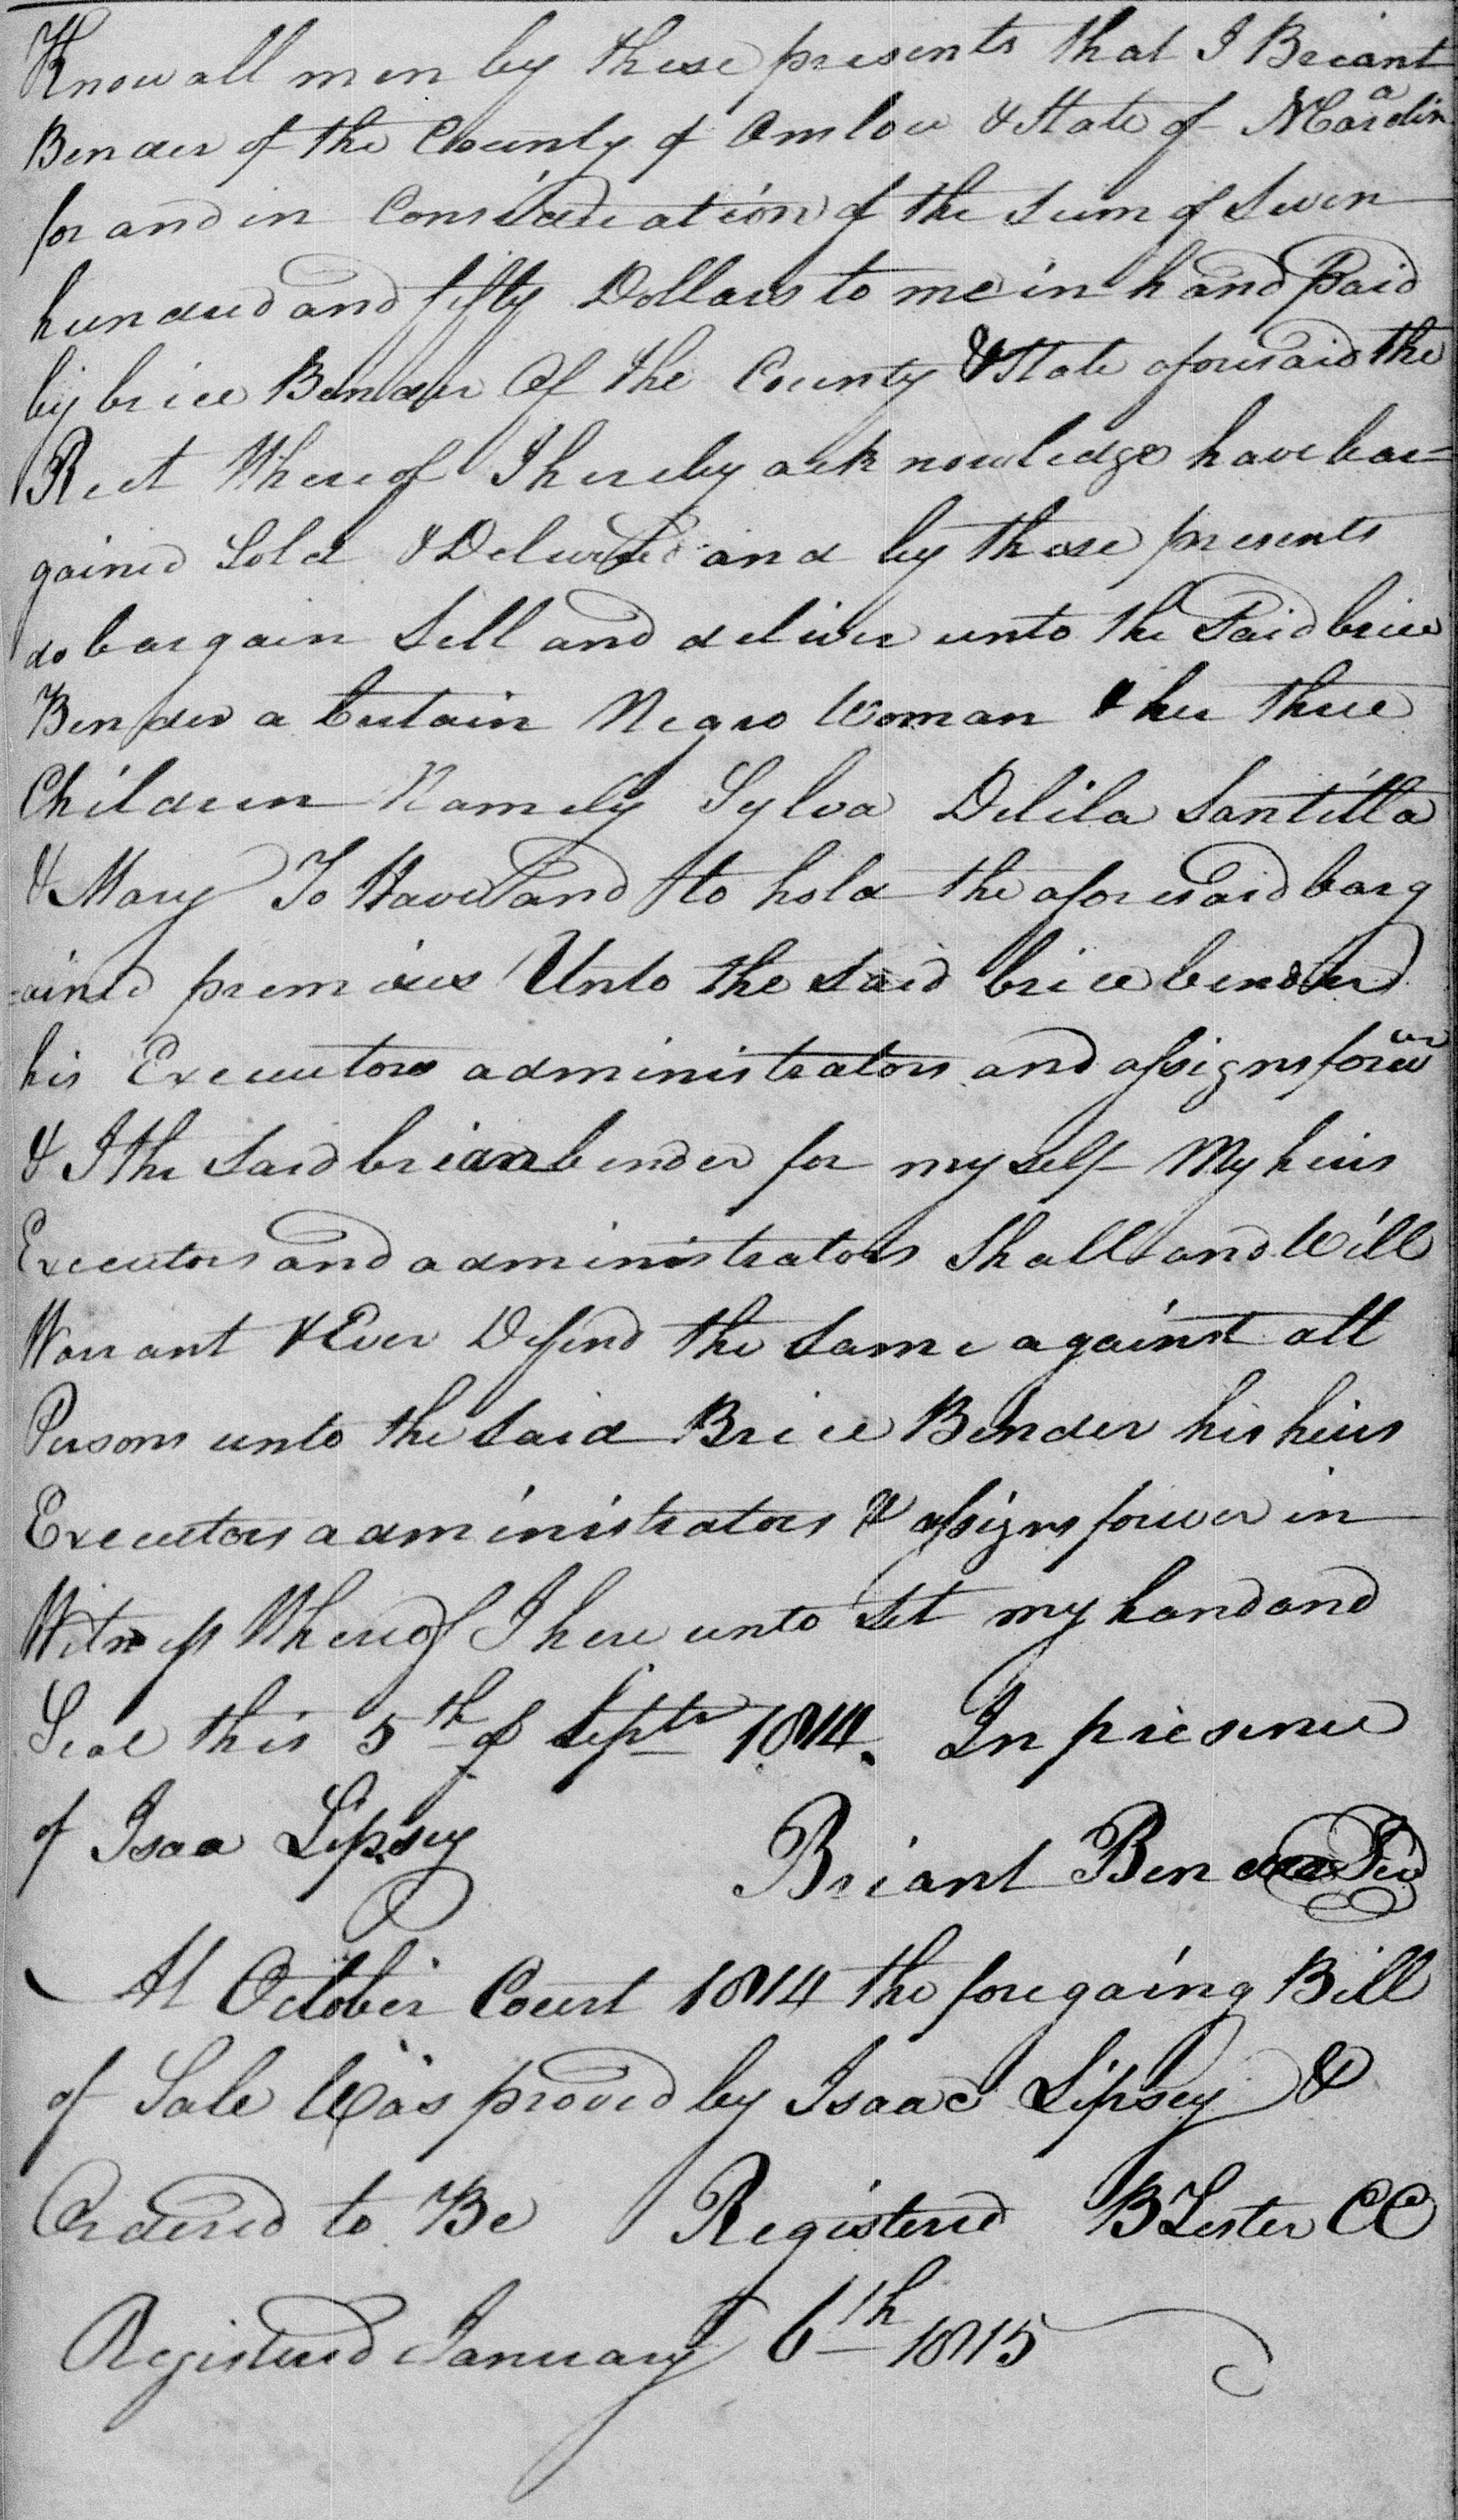 Know all men by these presents that I Briant
Bender of the County of Onslow & State of N Carolina
for and in Consideration of the Sum of Seven
hundred and fifty Dollars to me in hand Paid
by brice Bender Of the County & State aforesaid the
Rect Whereof I hereby acknowledge have bar=
gained Sold & Delivered and by these presents
do bargain Sell and deliver unto the Said brice
Bender a Certain Negro Woman & her three
Children Namely Sylva Delila Santilla
& Mary To Have and to hold the aforesaid barg
=ained premises Unto the Said brice bender
his Executors administrators and assigns forever
& I the Said brian bender for my self My heirs
Executors and administrators Shall and Will
Warrant & Ever Defend the Same against all
Persons unto the Said Brice Bender his heirs
Executors administrators & assigns forever in
Witness Whereof I here unto Set my hand and
Seal this 5th of Septr 1814. In presence
of Isaa Lipsey
Briant Bender Seal
At October Court 1814 the foregoing Bill
of Sale Was proved by Isaac Lipsey &
Ordered to Be Registered B Lester CC
Registered January 6th 1815